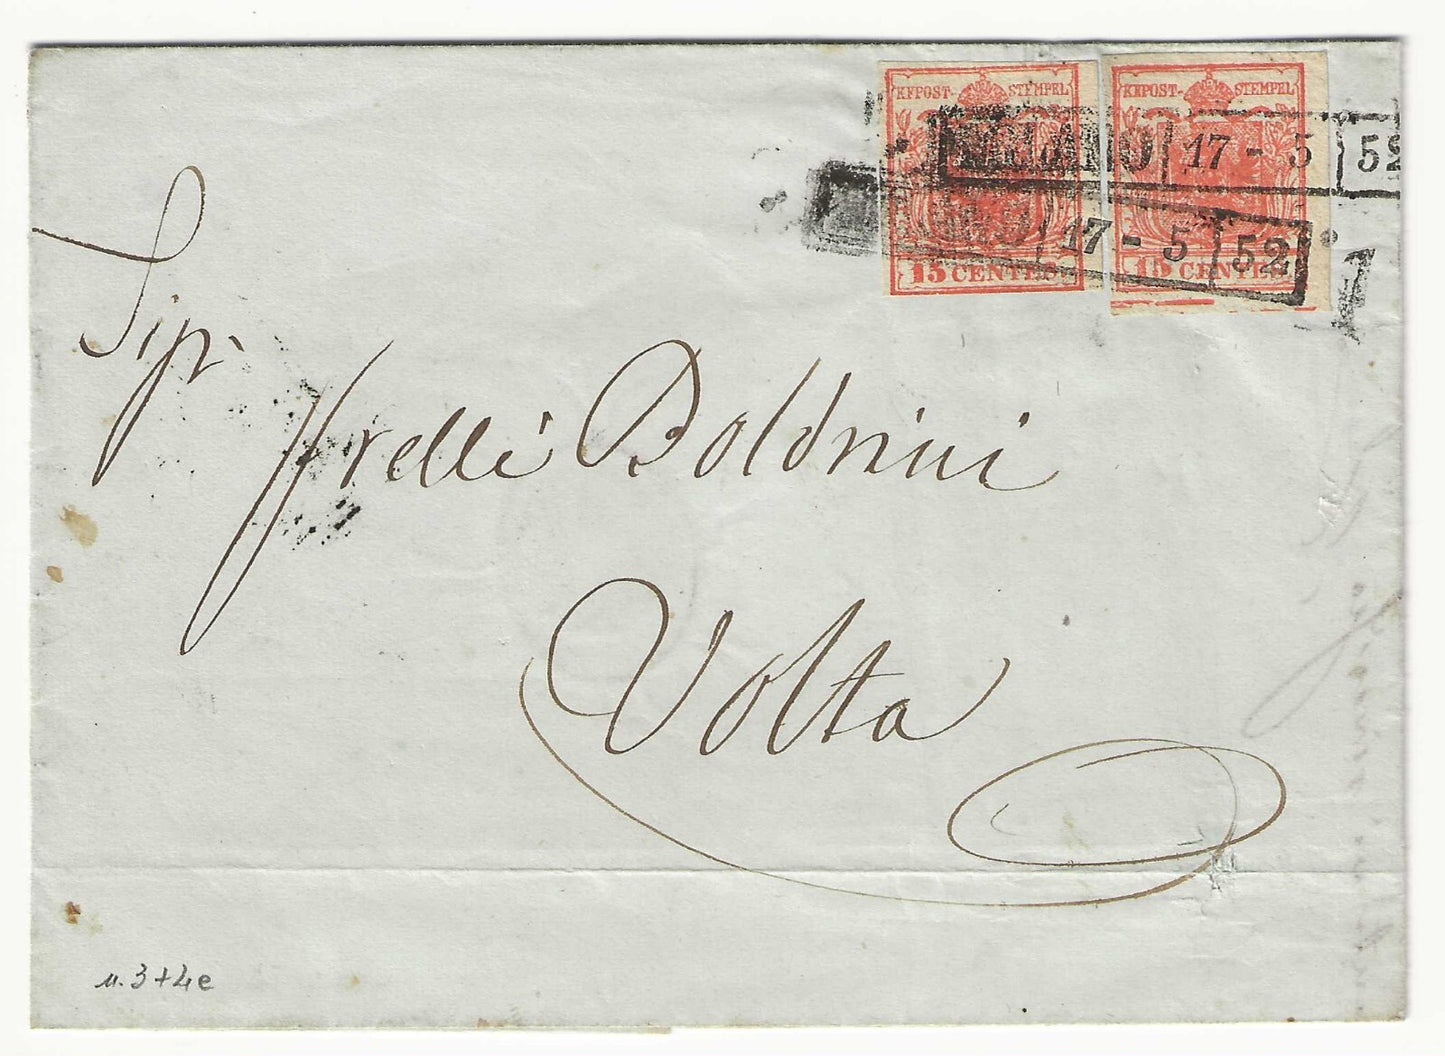 KKPOST-STEMPEL KKPOST-STEMPEL
MILANO 17 - 5 52
17 - 5 52
15 CENTES 15 CENTES
1
Sigri
Frelli Boldrini
Volta
n. 3+4e